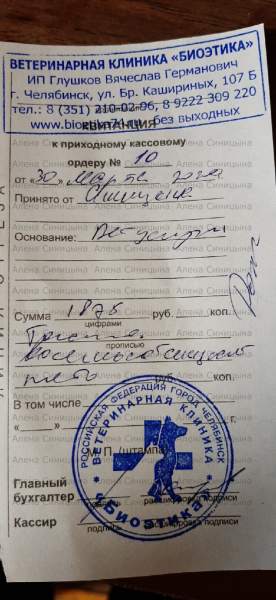 ВЕТЕРИНАРНАЯ КЛИНИКА «БИОЭТИКА»
ИП Глушков Вячеслав Германович
г. Челябинск, ул. Бр. Кашириных, 107 Б
тел.: 8 (351) 210-02-96, 8 9222 309 220
www.bioetika74.ru без выходных
КВИТАНЦИЯ
к приходному кассовому
ордеру № 10
от «30» Марта
Принято от
Основание: Вет услуги
Сумма 1875 руб. коп.
цифрами
прописью
восемьсот семьдесят
пять руб. коп.
В том числе
М.П. (штампа)
РОССИЙСКАЯ ФЕДЕРАЦИЯ ГОРОД ЧЕЛЯБИНСК
ВЕТЕРИНАРНАЯ КЛИНИКА
«Биоэтика»
Главный
бухгалтер
подпись расшифровка подписи
Кассир
подпись расшифровка подписи
ЛИНИЯ ОТРЕЗА
Алена Синицына